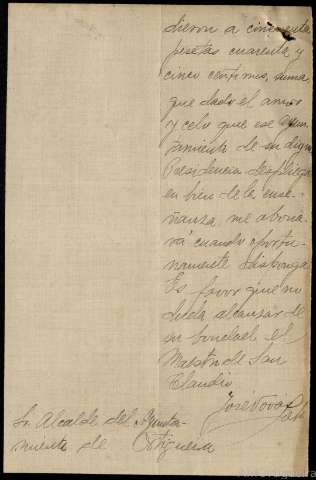 dieron a cincuenta
pesetas cuarenta y
cinco centimos, suma
que dado el amor
y celo que ese Ayun
tamiento de su digna
Presidencia despliega
en bien de la ense-
ñanza, me abona
rá cuando oportu-
namente disponga
Es favor que no
duda alcanzar de
su bondad el
Maestro de San
Claudio
José Novo
Sr. Alcalde del Ayunta-
miento de Ortigueira